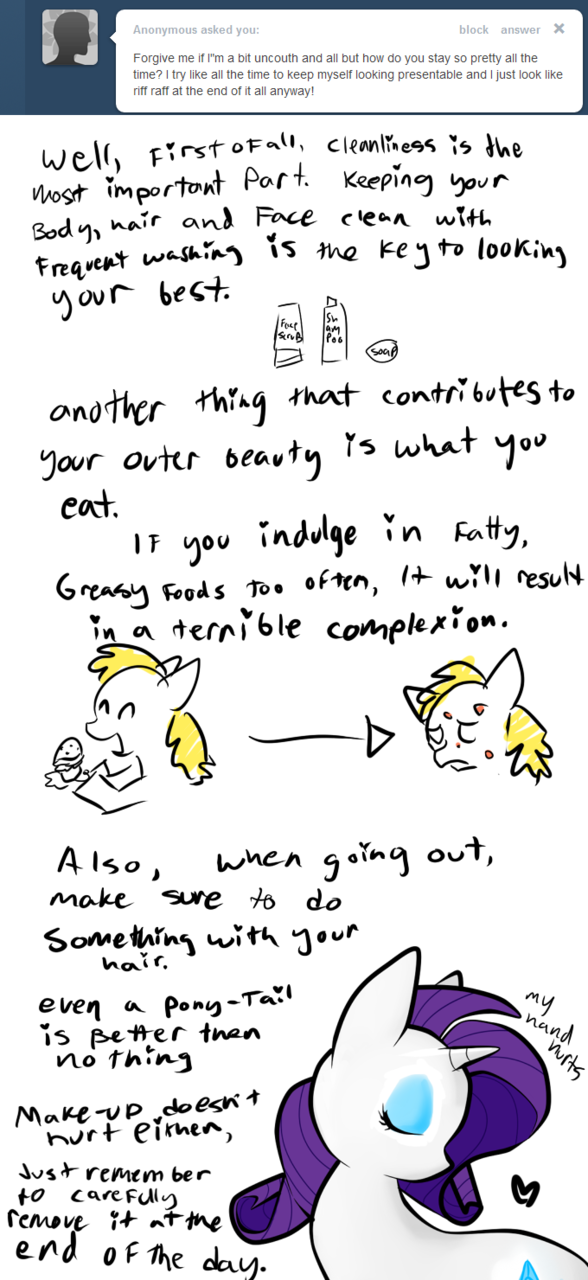 Anonymous asked you:
block answer ×
Forgive me if I"m a bit uncouth and all but how do you stay so pretty all the
time? I try like all the time to keep myself looking presentable and I just look like
riff raff at the end of it all anyway!
Well, First of all, cleanliness is the
most important Part. Keeping your
Body, hair and Face clean with
Frequent washing is the key to looking
your best.
Face
Scrub
Sh
am
Poo
soap
another thing that contributes to
your outer beauty is what you
eat.
IF you indulge in Fatty,
Greasy Foods too often, It will result
in a terrible complexion.
Also, when going out,
make sure to do
Something with your
hair.
even a Pony-Tail
is Better then
nothing
my
hand
hurts
Make-up doesn't
hurt either,
Just remember
to carefully
remove it at the
end of the day.